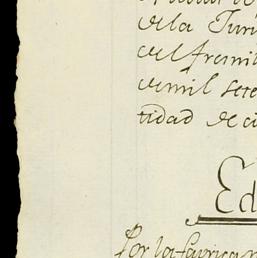 de la Juri
del fresni
de mil sete
tidad de ci
Ed
Por la fabrica